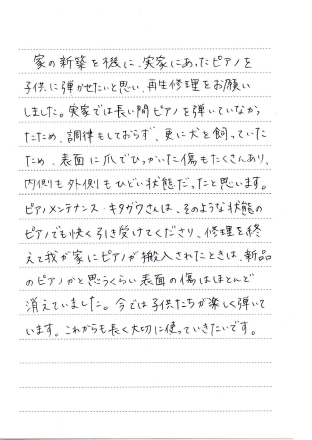 家の新築を機に、実家にあったピアノを
子供に弾かせたいと思い、再生修理をお願い
しました。実家では長い間ピアノを弾いていなかっ
たため、調律もしておらず、更に犬を飼っていた
ため、表面に爪でひっかいた傷もたくさんあり、
内側も外側もひどい状態だったと思います。
ピアノメンテナンス・キタガワさんは、そのような状態の
ピアノでも快く引き受けてくださり、修理を終
えて我が家にピアノが搬入されたときは、新品
のピアノかと思うくらい表面の傷はほとんど
消えていました。今では子供たちが楽しく弾いて
います。これからも長く大切に使っていきたいです。